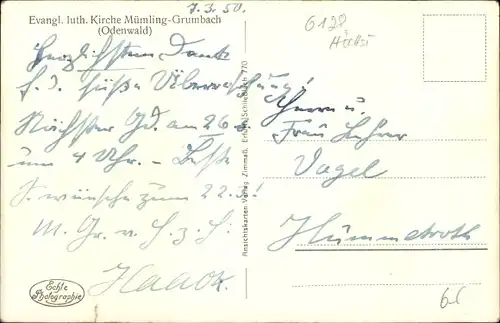 7.3.50.
6128
Höchst
Evangl. luth. Kirche Mümling-Grumbach
(Odenwald)
Herzlichsten Dank
f. d. süße Überraschung!
Nächster Gd. am 26.
um 4 Uhr. – Beste
S. wünsche zum 22.3!
M. Gr. v. H. z. H.
Haack.
Herrn u.
Frau Lehrer
Vogel
Hummetroth
Ansichtskarten-Verlag Zimmaß, Erfurt, Schließfach 770
Echte
Photographie